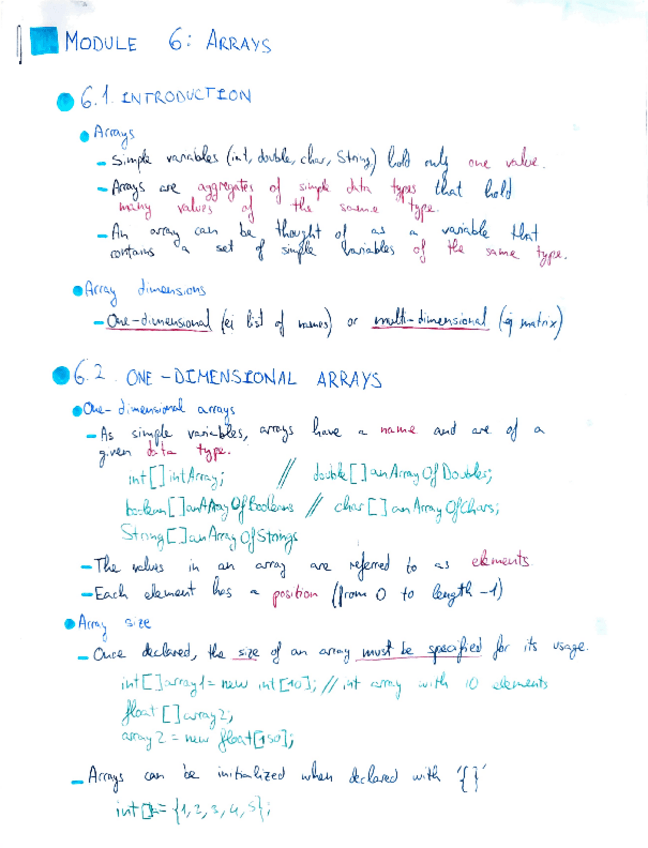 MODULE 6: ARRAYS
6.1. INTRODUCTION
Arrays
- Simple variables (int, double, char, String) hold only one value.
- Arrays are aggregates of simple data types that hold
many values of the same type.
- An array can be thought of as a variable that
contains a set of simple variables of the same type.
Array dimensions
- One-dimensional (ej list of names) or multi-dimensional (ej matrix)
6.2. ONE-DIMENSIONAL ARRAYS
One-dimensional arrays
- As simple variables, arrays have a name and are of a
given data type.
int[] intArray; // double[] anArrayOfDoubles;
boolean[] anArrayOfBooleans // char[] anArrayOfChars;
String[] anArrayOfStrings
- The values in an array are referred to as elements
- Each element has a position (from 0 to length -1)
Array size
- Once declared, the size of an array must be specified for its usage.
int[] array1 = new int[10]; // int array with 10 elements
float[] array2;
array2 = new float[150];
- Arrays can be initialized when declared with '{}'
= {1,2,3,4,5};